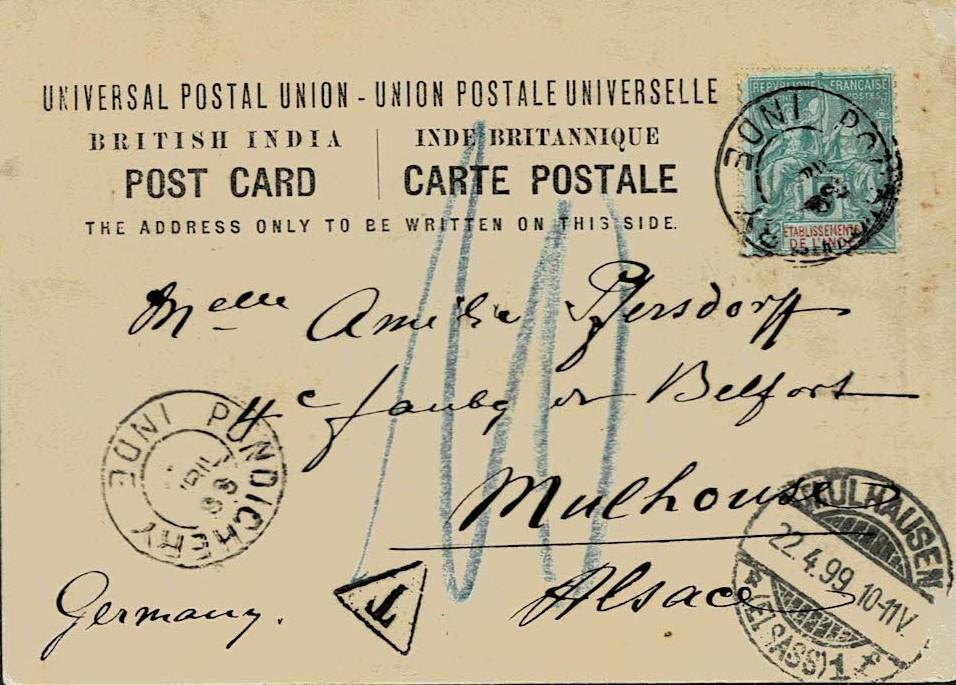 UNIVERSAL POSTAL UNION - UNION POSTALE UNIVERSELLE
BRITISH INDIA | INDE BRITANNIQUE
POST CARD | CARTE POSTALE
THE ADDRESS ONLY TO BE WRITTEN ON THIS SIDE.
REPUBLIQUE FRANCAISE
POSTES
ETABLISSEMENTS
DE L'INDE
Melle Amélie Pfersdorff
4c faubg de Belfort
Mulhouse
Alsace
Germany.
PONDICHERY
INDE
AVRIL
99
T
10
MULHAUSEN
22.4.99 10-11V.
(ELSASS) 1 f